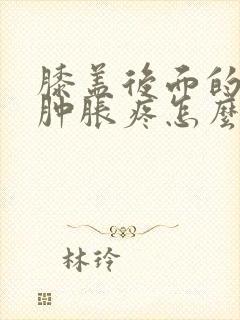 膝盖後面的
肿胀疼怎麽
林玲